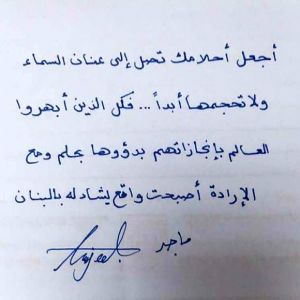 أجعل أحلامك تصل إلى عنان السماء
ولا تحجمها أبداً ... فكل الذين أبهروا
العالم بإنجازاتهم بدؤوها بحلم ومع
الإرادة أصبحت واقع يشار له بالبنان
ماجد